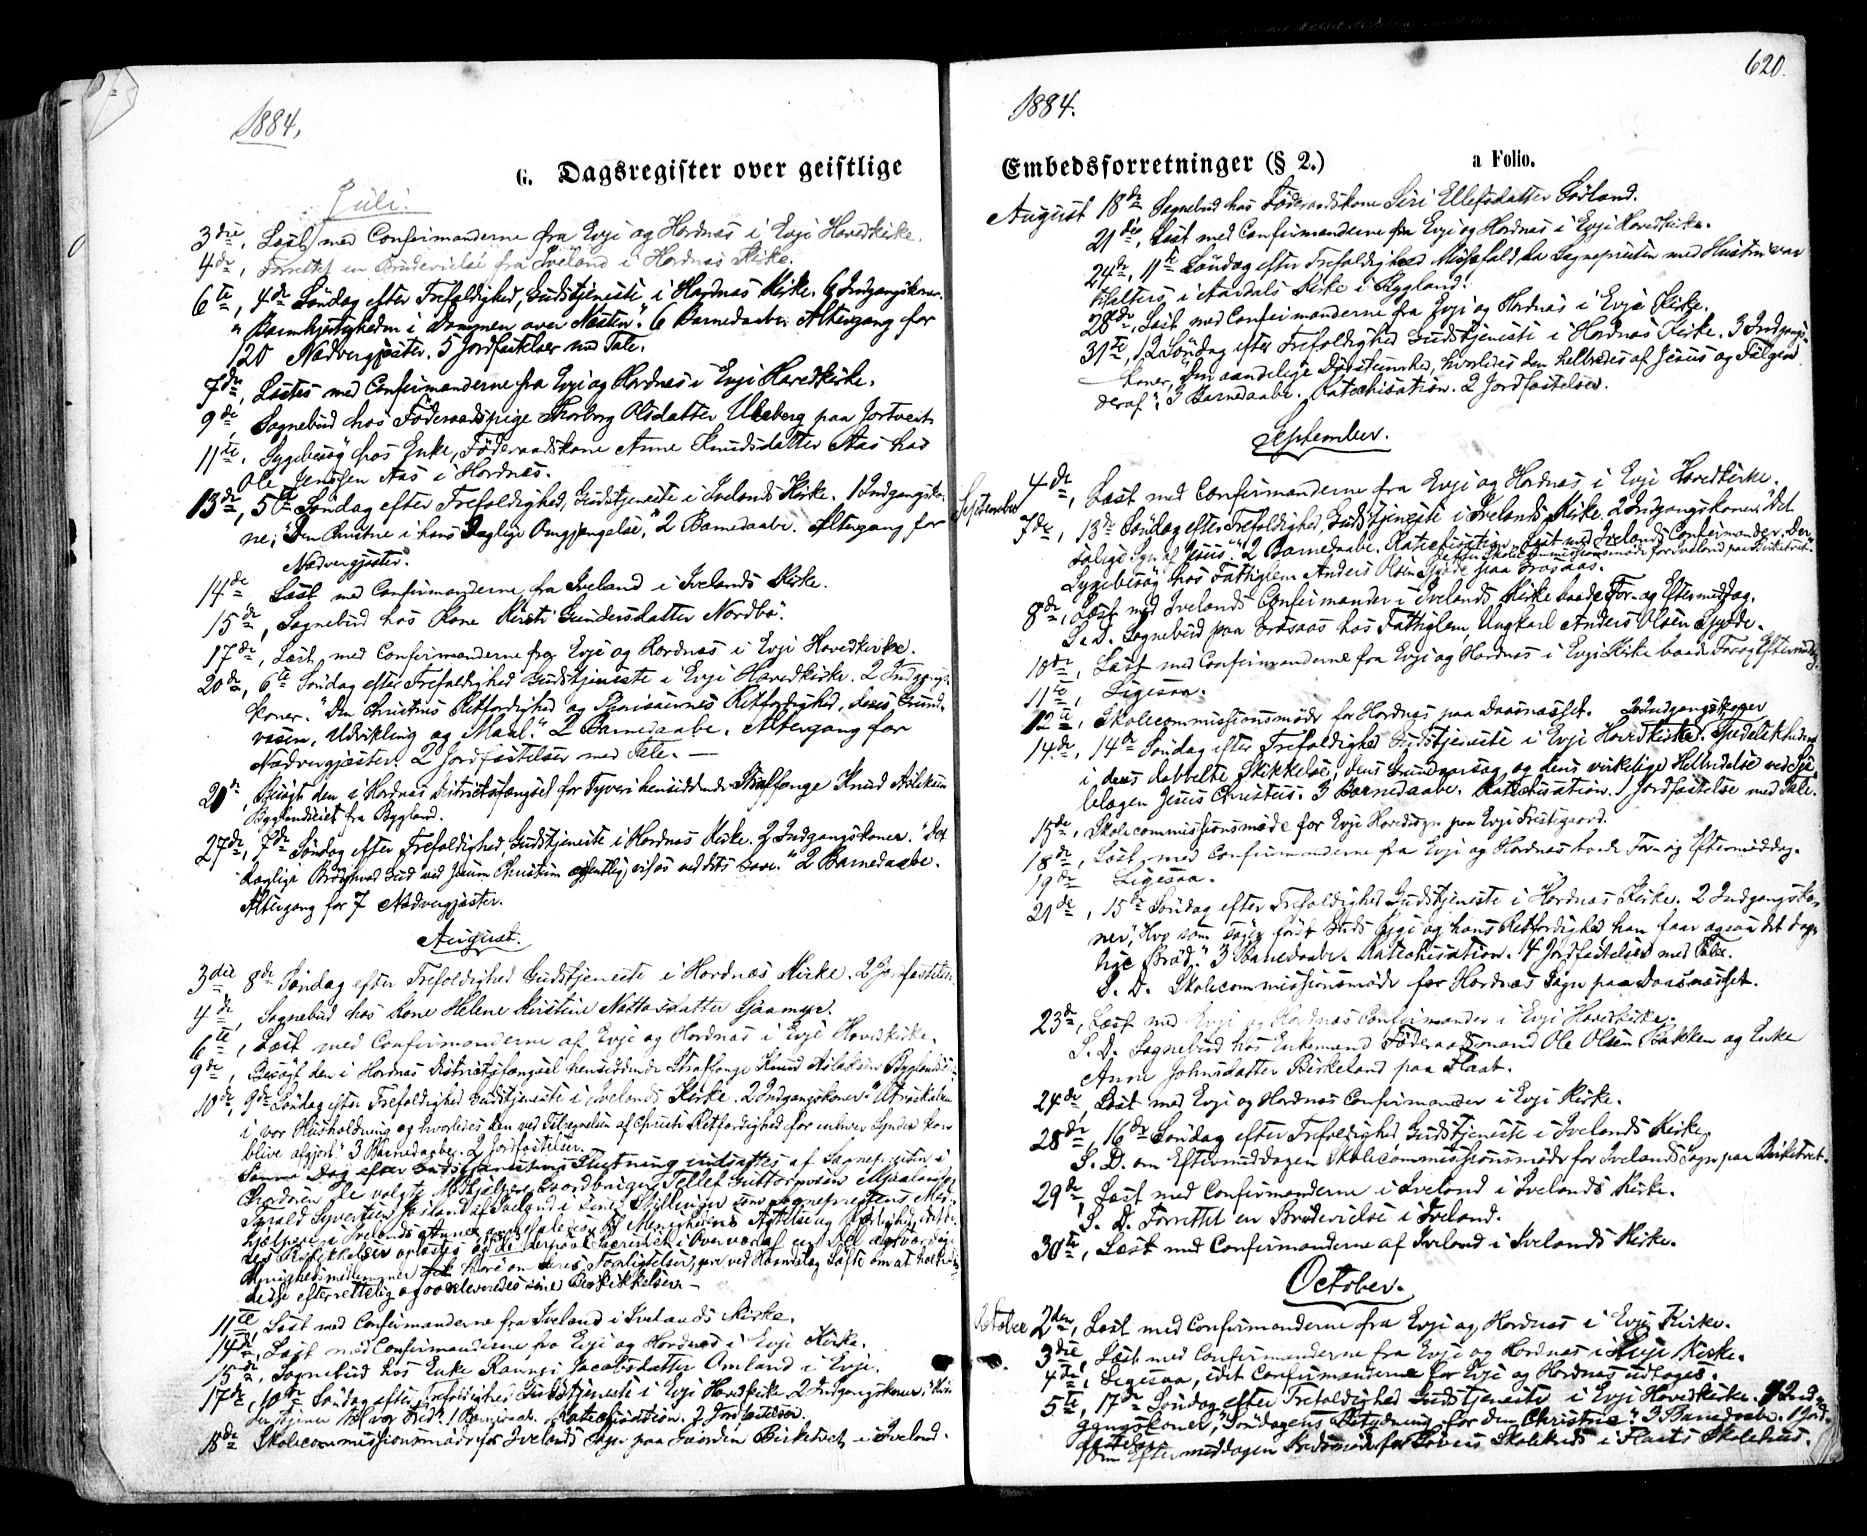 1884.
G. Dagsregister over geistlige
Juli.
3die, Læst med Confirmanderne fra Evje og Hordnæs i Evje Hovedkirke.
4de, Forrettet en Brudevielse fra Iveland i Hordnæs Kirke.
6te, 4de Søndag efter Trefoldighed, Gudstjeneste i Hordnæs Kirke. 6 Indgangskoner.
"Barmhjertigheden i Dommen over Næsten". 6 Barnedaabe. Altergang for
120 Nadvergjæster. 5 Jordfæstelser med Tale.
7de, Læstes med Confirmanderne fra Evje og Hordnæs i Evje Hovedkirke.
9de Sognebud hos Føderaadspige Thorborg Olsdatter Uleberg paa Jortveit.
11te, Sygebesøg hos Enke, Føderaadskone Anne Knudsdatter Aas hos
Ole Jensøen Aas i Hordnæs.
13de, 5te Søndag efter Trefoldighed, Gudstjeneste i Ivelands Kirke. 1 Indgangsko-
ne; "Den Christne i hans Daglige Omgjængelse," 2 Barnedaabe. Altergang for
Nadvergjæster.
14de Læst med Confirmanderne fra Iveland i Ivelands Kirke.
15de, Sognebud hos Kone Kirsti Gundersdatter Nordbø.
17de, Læst med Confirmanderne fra Evje og Hordnæs i Evje Hovedkirke.
20de, 6te Søndag efter Trefoldighed Gudstjeneste i Evje Hovedkirke. 2 Indgangs-
koner. "Den Christnes Retfærdighed og Pharisæernes Retfærdighed, deres Grund-
væsen, Udvikling og Maal." 2 Barnedaabe. Altergang for
Nadvergjæster. 2 Jordfæstelser med Tale. —
21de, Besøgt den i Hordnæs Distriktsfængsel for Tyveri hensiddende Straffange Knud Aslaksen
Byglandseiet fra Bygland.
27de, 7de Søndag efter Trefoldighed, Gudstjeneste i Hordnæs Kirke. 2 Indgangskoner. "Det
daglige Brød hvad Gud ved Jesum Christum offentlig vises ved dets Gave." 2 Barnedaabe.
Altergang for 7 Nadvergjæster.
August.
3die 8de Søndag efter Trefoldighed Gudstjeneste i Hordnæs Kirke. 2 Jordfæstelser.
4de, Sognebud hos Kone Helene Kirstine Nottosdatter Gaamyr.
6te, Læst med Confirmanderne af Evje og Hordnæs i Evje Hovedkirke.
9de, Besøgt den i Hordnæs Distriktsfængsel hensiddende Straffange Knud Aslaksen Byglandsei-
10de, 9de Søndag efter Trefoldighed Gudstjeneste i Ivelands Kirke. 2 Indgangskoner. "Utroskaben
i vor Husholdning og hvorledes den ved Tilregnelsen af Christi Retfærdighed for enhver Synder kan
blive afgjort." 3 Barnedaabe. 2 Jordfæstelser.
Samme Dag efter Gudstjenestens Slutning indsattes af Sognepresten i
Chordøren de valgte Medhjælpere, Gaardbruger Tellef Guttormsen
Tarald Syvertsen i Iveland i deres Stillinger som Sogneprestens Med-
hjælpere i Ivelands Annex
11te Læst med Confirmanderne fra Iveland i Ivelands Kirke.
14de, Læst med Confirmanderne fra Evje og Hordnæs i Evje Kirke.
15de, Sognebud hos Enke Ranngi Jacobsdatter Omland i Evje.
17de, 10de Søndag efter Trefoldighed Gudstjeneste i Evje Hovedkirke. 2 Indgangskoner,
tjener til vor Fred". 1 Barnedaab. Katechisation. 2 Jordfæstelser.
18de Skolecommissionsmøde for Ivelands Sogn paa Gaarden Birketveit i Iveland.
620.
1884.
Embedsforretninger (§ 2.) a Folio.
August 18de Sognebud hos Føderaadskone Siri Ellefsdatter Sørland.
21de, Læst med Confirmanderne fra Evje og Hordnæs i Evje Hovedkirke.
24de, 11te Søndag efter Trefoldighed Messefald, da Sognepresten med Hustru var
til Alters i Aardals Kirke i Bygland.
28de, Læst med Confirmanderne fra Evje og Hordnæs i Evje Kirke.
31te, 12 Søndag efter Trefoldighed Gudstjeneste i Hordnæs Kirke. 3 Indgangs-
koner, "Den aandelige Døvstumhed, hvorledes den helbredes af Jesus og Følgen
deraf". 3 Barnedaabe. Katechisation. 2 Jordfæstelser.
September.
September 4de, Læst med Confirmanderne fra Evje og Hordnæs i Evje Hovedkirke.
7de, 13de Søndag efter Trefoldighed, Gudstjeneste i Ivelands Kirke. 2 Indgangskoner. "Det
salige Syn af Jesus." 2 Barnedaabe. Katechisation. Læst med Ivelands Confirmander. Der-
efter Skolecommissionsmøde for Iveland paa Birketveit.
Sygebesøg hos Fattiglem Anders Olsen Gjøde paa Frøsaas.
8de, Læst med Ivelands Confirmander i Ivelands Kirke baade For- og Eftermiddag.
S. D. Sognebud paa Frøsaas hos Fattiglem, Ungkarl Anders Olsen Gjøde.
10de, Læst med Confirmanderne fra Evje og Hordnæs i Evje Kirke baade For og Eftermiddag.
11te, Ligesaa.
12te, Skolecommissionsmøde for Hordnæs paa Daasnæsset. 2 Indgangskoner
14de, 14de Søndag efter Trefoldighed Gudstjeneste i Evje Hovedkirke. Spedalskheden
i dens dobbelte Skikkelse, dens Grundaarsag og dens virkelige Helbredelse ved Sjæ-
lelægen Jesus Christus. 3 Barnedaabe. Katechisation. 1 Jordfæstelse med Tale.
15de, Skolecommissionsmøde for Evje Hovedsogn paa Evje Præstegaard.
18de, Læst med Confirmanderne fra Evje og Hordnæs baade For- og Eftermiddag.
19de Ligesaa.
21de, 15de Søndag efter Trefoldighed Gudstjeneste i Hordnæs Kirke. 2 Indgangsko-
ner, "Hvo som søger først Guds Rige og hans Retfærdighed han faar ogsaa det dag-
lige Brød." 3 Barnedaabe. Katechisation. 4 Jordfæstelser med Tale.
S. D. Skolecommissionsmøde for Hordnæs Sogn paa Daasnæsset.
23de, Læst med Evje og Hordnæs Confirmander i Evje Hovedkirke.
S. D. Sognebud hos Enkemand Føderaadsmand Ole Olsen Bakken og Enke
Anne Johnsdatter Birkeland paa Flaat.
24de, Læst med Evje og Hordnæs Confirmander i Evje Kirke.
28de, 16de Søndag efter Trefoldighed Gudstjeneste i Ivelands Kirke.
S. D. om Eftermiddagen Skolecommissionsmøde for Ivelands Sogn paa Birketveit.
29de, Læst med Confirmanderne i Iveland i Ivelands Kirke.
S. D. Forrettet en Brudevielse i Iveland.
30te, Læst med Confirmanderne af Iveland i Ivelands Kirke.
October.
October 2den, Læst med Confirmanderne fra Evje og Hordnæs i Evje Kirke.
3die, Læst med Confirmanderne fra Evje og Hordnæs i Evje Kirke.
4de, Ligesaa, idet Confirmanderne for Evje og Hordnæs udtoges.
5te, 17de Søndag efter Trefoldighed Gudstjeneste i Evje Hovedkirke. 7 Ind-
gangskoner, "Søndagens Betydning for den Christne". 3 Barnedaabe. 1 Jord-
fæstelse.
Om Eftermiddagen Kredsmøde for Skolekreds i Flaats Skolehus.